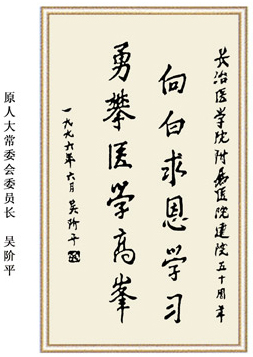 长治医学院附属医院建院五十周年
向白求恩学习
勇攀医学高峯
一九九六年六月 吴阶平
原人大常委会委员长 吴阶平